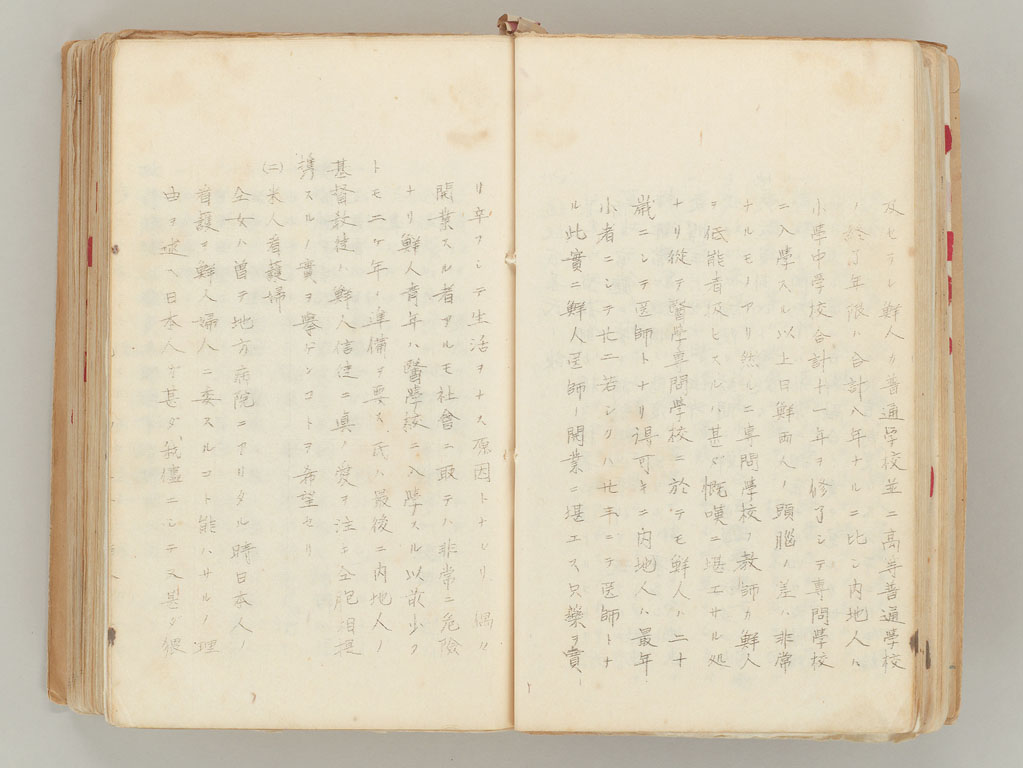 及セラレ鮮人カ普通学校並ニ高等普通學校
ノ終了年限ハ合計八年ナルニ比シ内地人ハ
小學中学校合計十一年ヲ修了シテ専問學校
ニ入學スル以上日鮮両人ノ頭腦ノ差ハ非常
ナルモノアリ然ルニ専問學校ノ教師カ鮮人
ヲ低能者扱ヒスルハ甚タ慨嘆ニ堪エサル処
ナリ從テ醫學専問学校ニ於テモ鮮人ハ二十
歳ニシテ医師トナリ得可キニ内地人ハ最年
小者ニシテ廿二若シクハ廿三ニテ医師トナ
ル此實ニ鮮人医師ノ開業ニ堪エス只藥ヲ賣
リ辛フシテ生活ヲナス原因トナレリ 偶々
開業スル者アルモ社會ニ取テハ非常ニ危險
ナリ鮮人青年ハ醫學校ニ入學スル以前少ク
トモ二ケ年ノ準備ヲ要ス氏ハ最後ニ内地人ノ
基督教徒ハ鮮人信徒ニ真ノ愛ヲ注キ同胞相提
携スルノ實ヲ擧ゲンコトヲ希望セリ
(二)米人看護婦
仝女ハ曽テ地方病院ニアリタル時日本人ノ
看護ヲ鮮人婦人ニ委スルコト能ハサルノ理
由ヲ述ヘ日本人ガ甚ダ我儘ニシテ又甚ダ猥